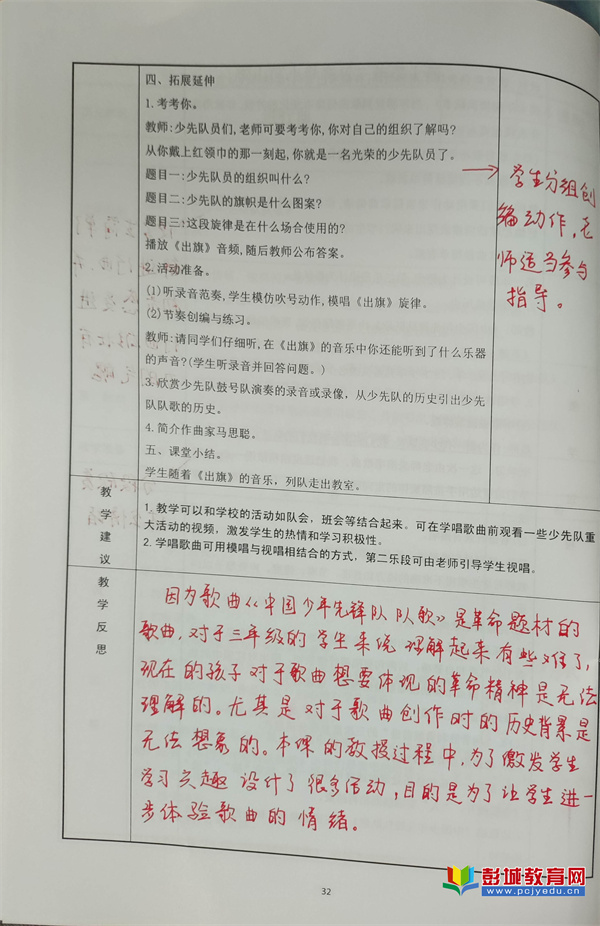 四、拓展延伸
1. 考考你。
教师:少先队员们,老师可要考考你,你对自己的组织了解吗?
从你戴上红领巾的那一刻起,你就是一名光荣的少先队员了。
题目一:少先队员的组织叫什么?
题目二:少先队的旗帜是什么图案?
题目三:这段旋律是在什么场合使用的?
播放《出旗》音频,随后教师公布答案。
2. 活动准备。
(1)听录音范奏,学生模仿吹号动作,模唱《出旗》旋律。
(2)节奏创编与练习。
教师:请同学们仔细听,在《出旗》的音乐中你还能听到了什么乐器
的声音?(学生听录音并回答问题。)
3. 欣赏少先队鼓号队演奏的录音或录像,从少先队的历史引出少先
队队歌的历史。
4. 简介作曲家马思聪。
五、课堂小结。
学生随着《出旗》的音乐,列队走出教室。
学生分组创
编动作,老
师适当参与
指导。
教学建议
1. 教学可以和学校的活动如队会，班会等结合起来。可在学唱歌曲前观看一些少先队重
大活动的视频，激发学生的热情和学习积极性。
2. 学唱歌曲可用模唱与视唱相结合的方式，第二乐段可由老师引导学生视唱。
教学反思
因为歌曲《中国少年先锋队队歌》是革命题材的
歌曲,对于三年级的学生来说理解起来有些难了,
现在的孩子对于歌曲想要体现的革命精神是无法
理解的。尤其是对于歌曲创作时的历史背景是
无法想象的。本课的教授过程中,为了激发学生
学习兴趣设计了很多活动,目的是为了让学生进一
步体验歌曲的情绪。
32
彭城教育网
www.pcjyedu.cn